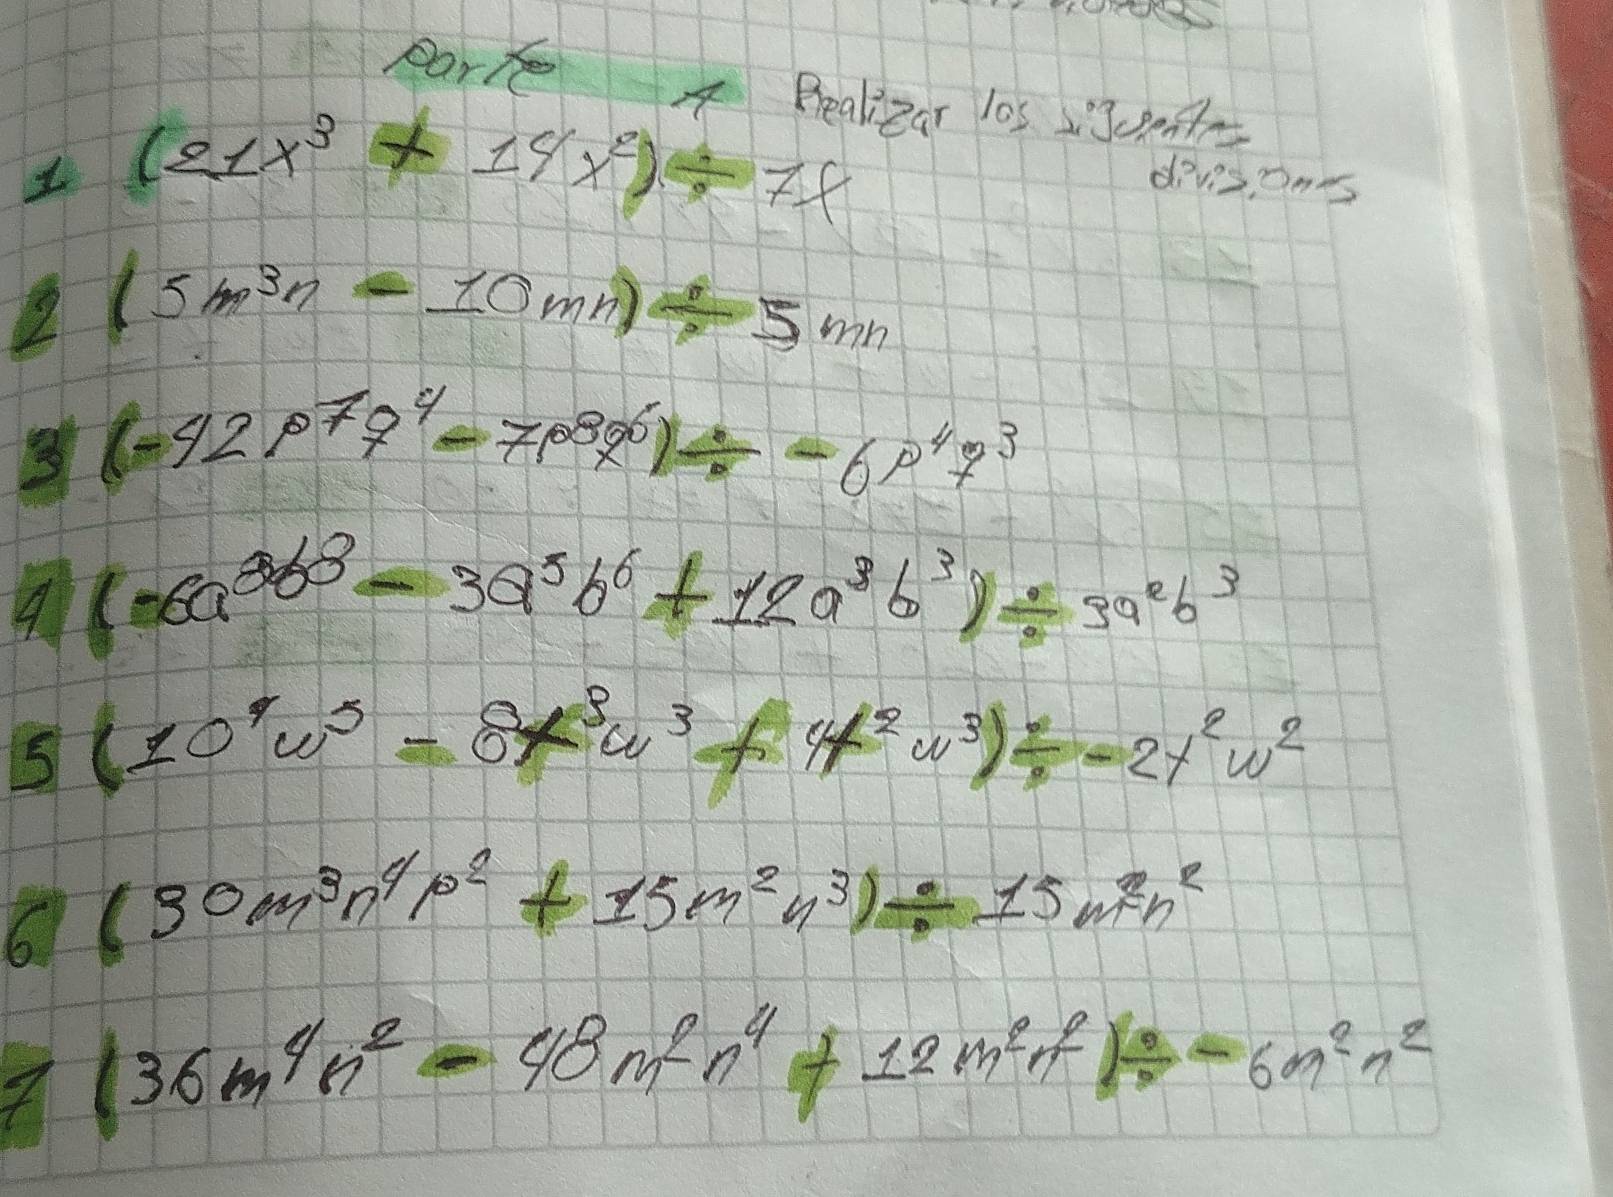 Parte A Realizar los siguientes
divisiones
1 (21x³ + 14x²) ÷ 7x
2 (5m³n - 10mn) ÷ 5mn
3 (-42p⁷q⁴ - 7p⁸q⁶) ÷ -6p⁴q³
4 (-6a⁸b⁸ - 3a⁵b⁶ + 12a³b³) ÷ 3a²b³
5 (10⁴w⁵ - 8x³w³ + 4x²w³) ÷ -2x²w²
6 (30m³n⁴p² + 15m²n³) ÷ 15m²n²
7 (36m⁴n² - 48m²n⁴ + 12m²n²) ÷ -6n²n²